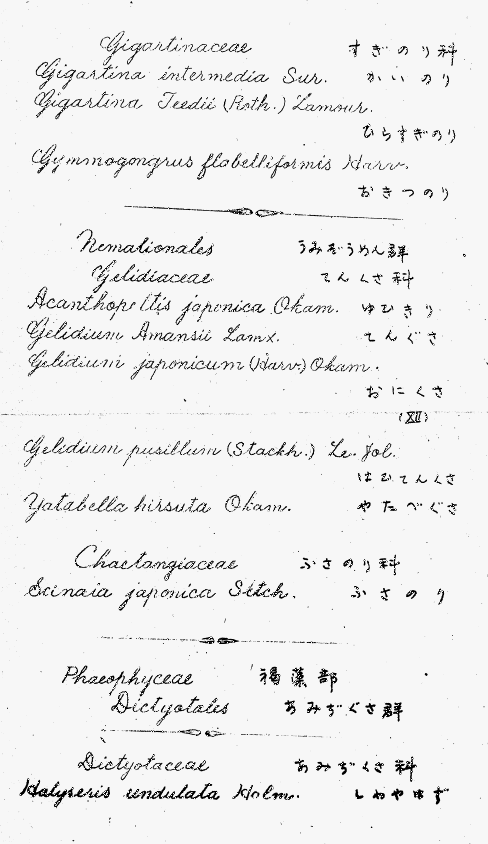 Gigartinaceae すぎのり科
Gigartina intermedia Sur. かいのり
Gigartina Teedii (Roth.) Lamour.
ひらすぎのり
Gymmogongrus flabelliformis Harv.
おきつのり
Nemalionales うみぞうめん群
Gelidiaceae てんくさ科
Acanthopeltis japonica Okam. ゆひきり
Gelidium Amansii Lamx. てんぐさ
Gelidium japonicum (Harv.) Okam.
おにくさ
(XII)
Gelidium pusillum (Stackh.) Le. Jol.
はひてんくさ
Yatabella hirsuta Okam. やたべぐさ
Chaetangiaceae ふさのり科
Scinaia japonica Setch. ふさのり
Phaeophyceae 褐藻部
Dictyotales あみぢぐさ群
Dictyotaceae あみぢくさ科
Halyseris undulata Holm. しわやはず